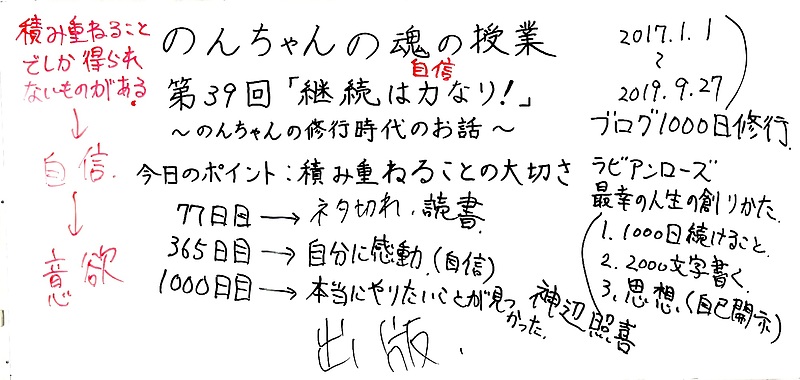 積み重ねること
でしか得られ
ないものがある。
↓
自信.
↓
意欲
のんちゃんの魂の授業
自信
第39回「継続は力なり!」
~のんちゃんの修行時代のお話~
今日のポイント:積み重ねることの大切さ
77日目→ネタ切れ、読書.
365日目→自分に感動.(自信)
1000日目→本当にやりたいことが見つ
かった.
出版.
2017.1.1
~
2019.9.27
ブログ1000日修行.
ラビアンローズ
最幸の人生の創りかた.
1.1000日続けること.
2.2000文字書く.
3.思想.(自己開示)
神辺照喜